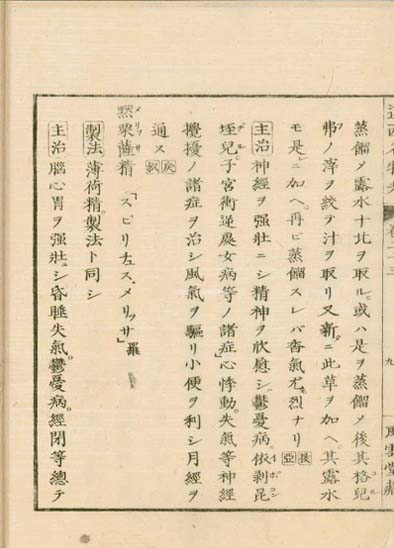 蒸餾メ露水十比ヲ取ル。或ハ是ヲ蒸餾メ後其格兒
弗ノ滓ヲ絞テ汁ヲ取リ又新ニ此草ヲ加ヘ。其露水
モ是ニ加ヘ。再ビ蒸餾スレバ香氣尤烈ナリ
主治神經ヲ强壯ニシ精神ヲ欣慰シ鬱憂病。依剥昆
垤兒。子宮衝逆處女病等ノ諸症心悸動。失氣等神經
攪擾ノ諸症ヲ治シ風氣ヲ驅リ小便ヲ利シ月經ヲ
通ス
黙栗薩精「スピリチュス・メリッサ」羅
製法薄荷精。製法ト同シ
主治腦心胃ヲ强壯ニシ昏睡失氣。鬱憂病。經閉等總テ